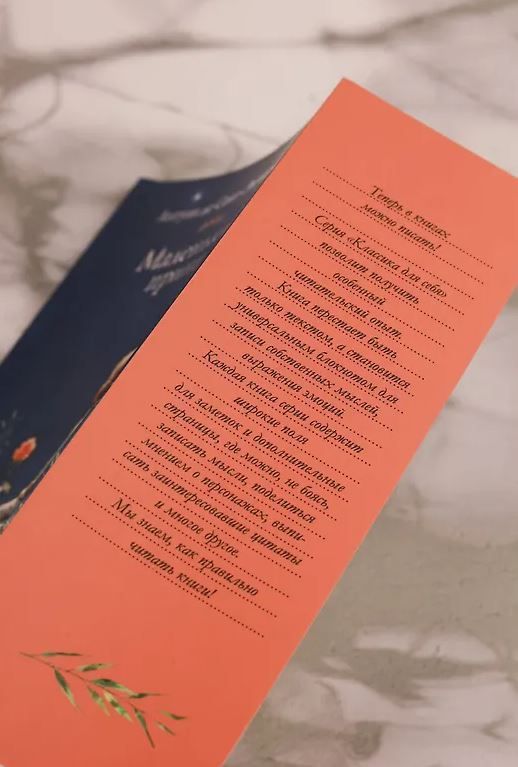 Маленький
Теперь в книгах
можно писать!
Серия «Классика для себя»
позволит получить
особенный
читательский опыт.
Книга перестает быть
только текстом, а становится
универсальным блокнотом для
записи собственных мыслей,
выражения эмоций.
Каждая книга серии содержит
широкие поля
для заметок и дополнительные
страницы, где можно, не боясь,
записать мысли, поделиться
мнением о персонажах, выпи-
сать заинтересовавшие цитаты
и многое другое.
Мы знаем, как правильно
читать книги!